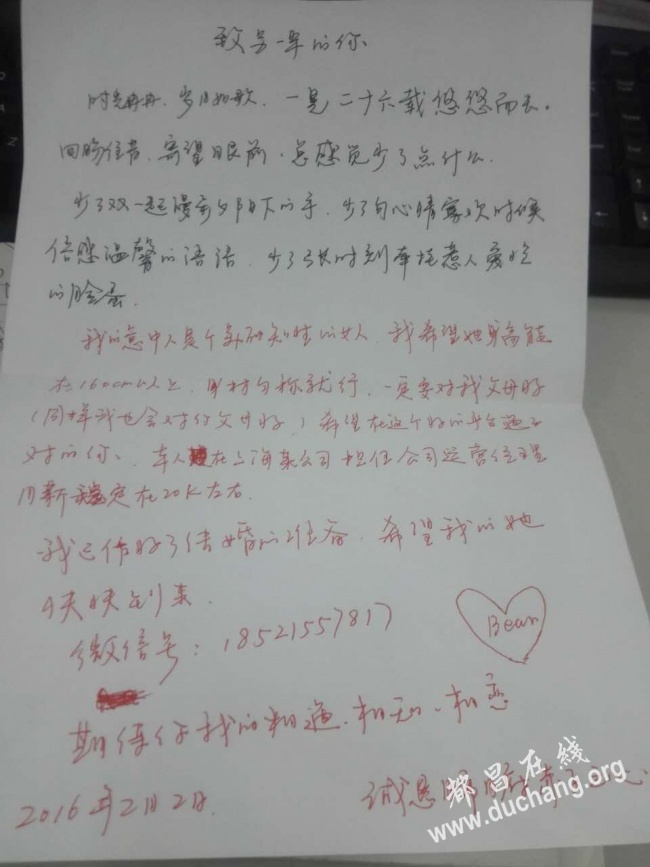 致另一半的你
时光冉冉，岁月如歌，一晃二十六载悠悠而去。
回眸往昔，寄望眼前，总感觉少了点什么。
少了双一起漫步夕阳下的手，少了句心情寂寥时候
倍感温馨的话语，少了
的脸蛋
我的意中人是个美丽知性的女人，我希望她身高能
在160cm以上，身材匀称就行，一定要对我父母好
(同样我也会对你父母好)希望在这个好的平台遇上
对的你。本人在上海某公司担任公司运营经理
月薪稳定在20K左右.
我已作好了结婚的准备，希望我的她
快快到来.
微信号：18521557817
Bean
期待你我的相遇、相知、相恋
2016年2月2日.
都昌在线
www.duchang.org